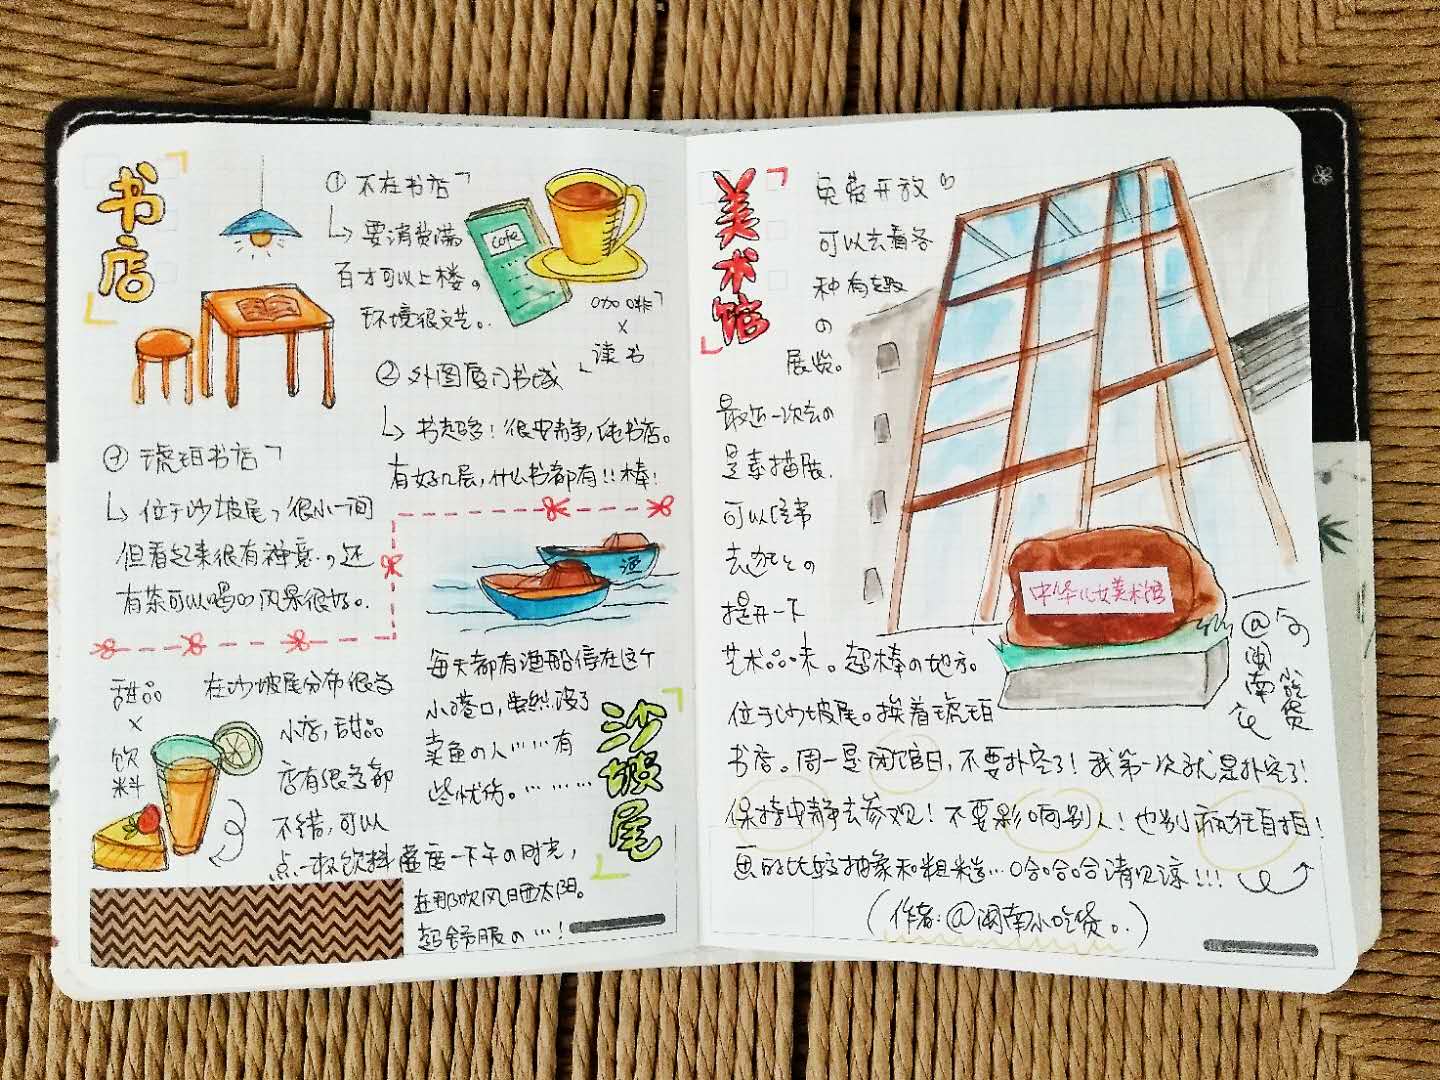 书店
① 不在书店
要消费满
百才可以上楼。
环境很文艺。
cafe
咖啡
×
读书
② 外图厦门书城
书超多！很安静，纯书店。
有好几层，什么书都有!!棒!
③ 琥珀书店
位于沙坡尾，很小一间
但看起来很有神意，还
有茶可以喝，风景很好。
渔
每天都有渔船停在这个
小港口，虽然没了
卖鱼の人……有
些忧伤。………
沙坡尾
甜品
×
饮料
在沙坡尾分布很多
小店，甜品
店有很多都
不错，可以
点一杯饮料虚度一下午の时光，
在那吹风日西太阳。
超舒服の…！
美术馆
免费开放
可以去看各
种有趣
の
展览。
最近一次去の
是素描展。
可以经常
去逛逛の
提升一下
艺术品味。超棒の地方。
位于沙坡尾。挨着琥珀
书店。周一是闭馆日，不要扑空了！我第一次就是扑空了！
保持安静去参观！不要影响别人！也别疯狂自拍！
画的比较抽象和粗糙…哈哈哈请见谅!!!
(作者:@闽南小吃货。)
中华儿女美术馆
@闽南
小吃货